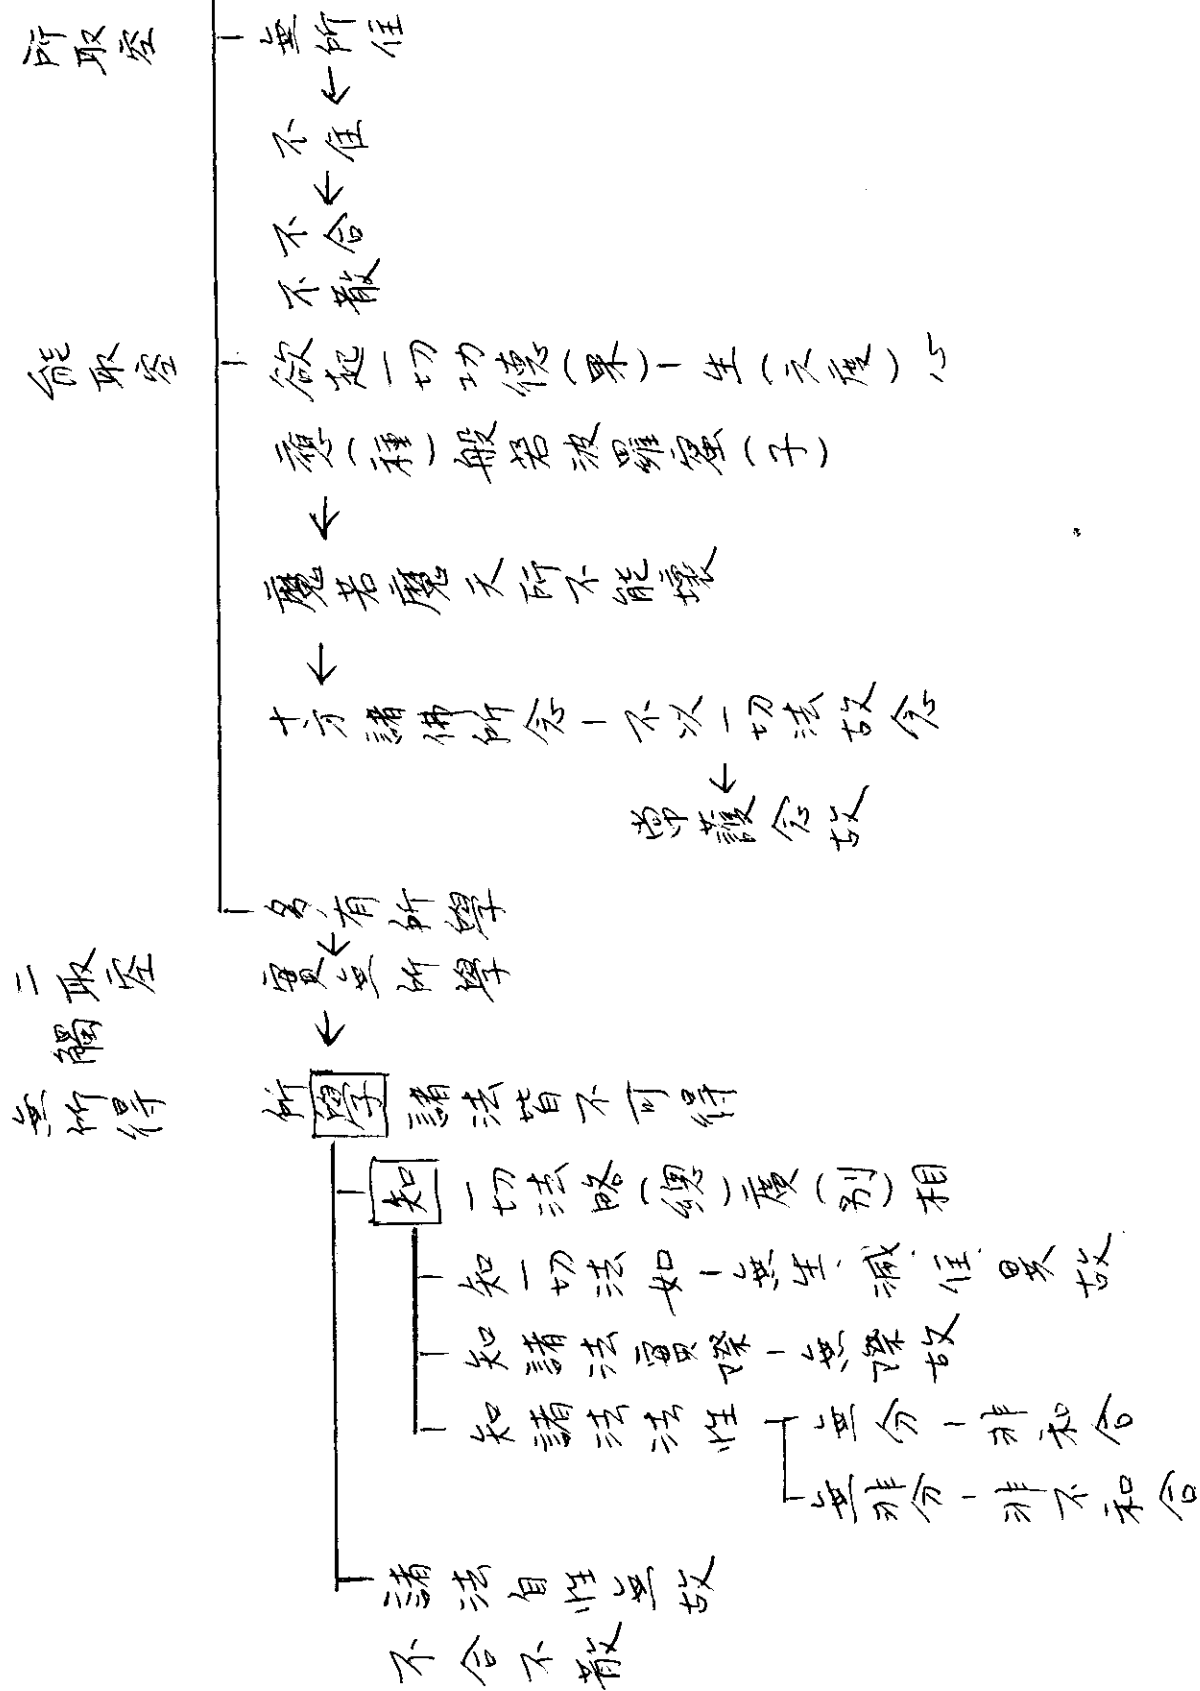 所取空
無所住
不住
不合
不散
能取空
欲起一切功德(果)-生(六度)心
應(種)般若波羅蜜(子)
魔若魔天所不能壞
十方諸佛所念-不以一切法故念
常護念故
名有所學
二取空
實無所學
觸
無所得
所學諸法皆不可得
知一切法略(總)廣(別)相
知一切法如-無生、滅、住、異故
知諸法實際-無際故
知諸法法性
無分-非和合
無非分-非不和合
諸法自性無故
不合不散